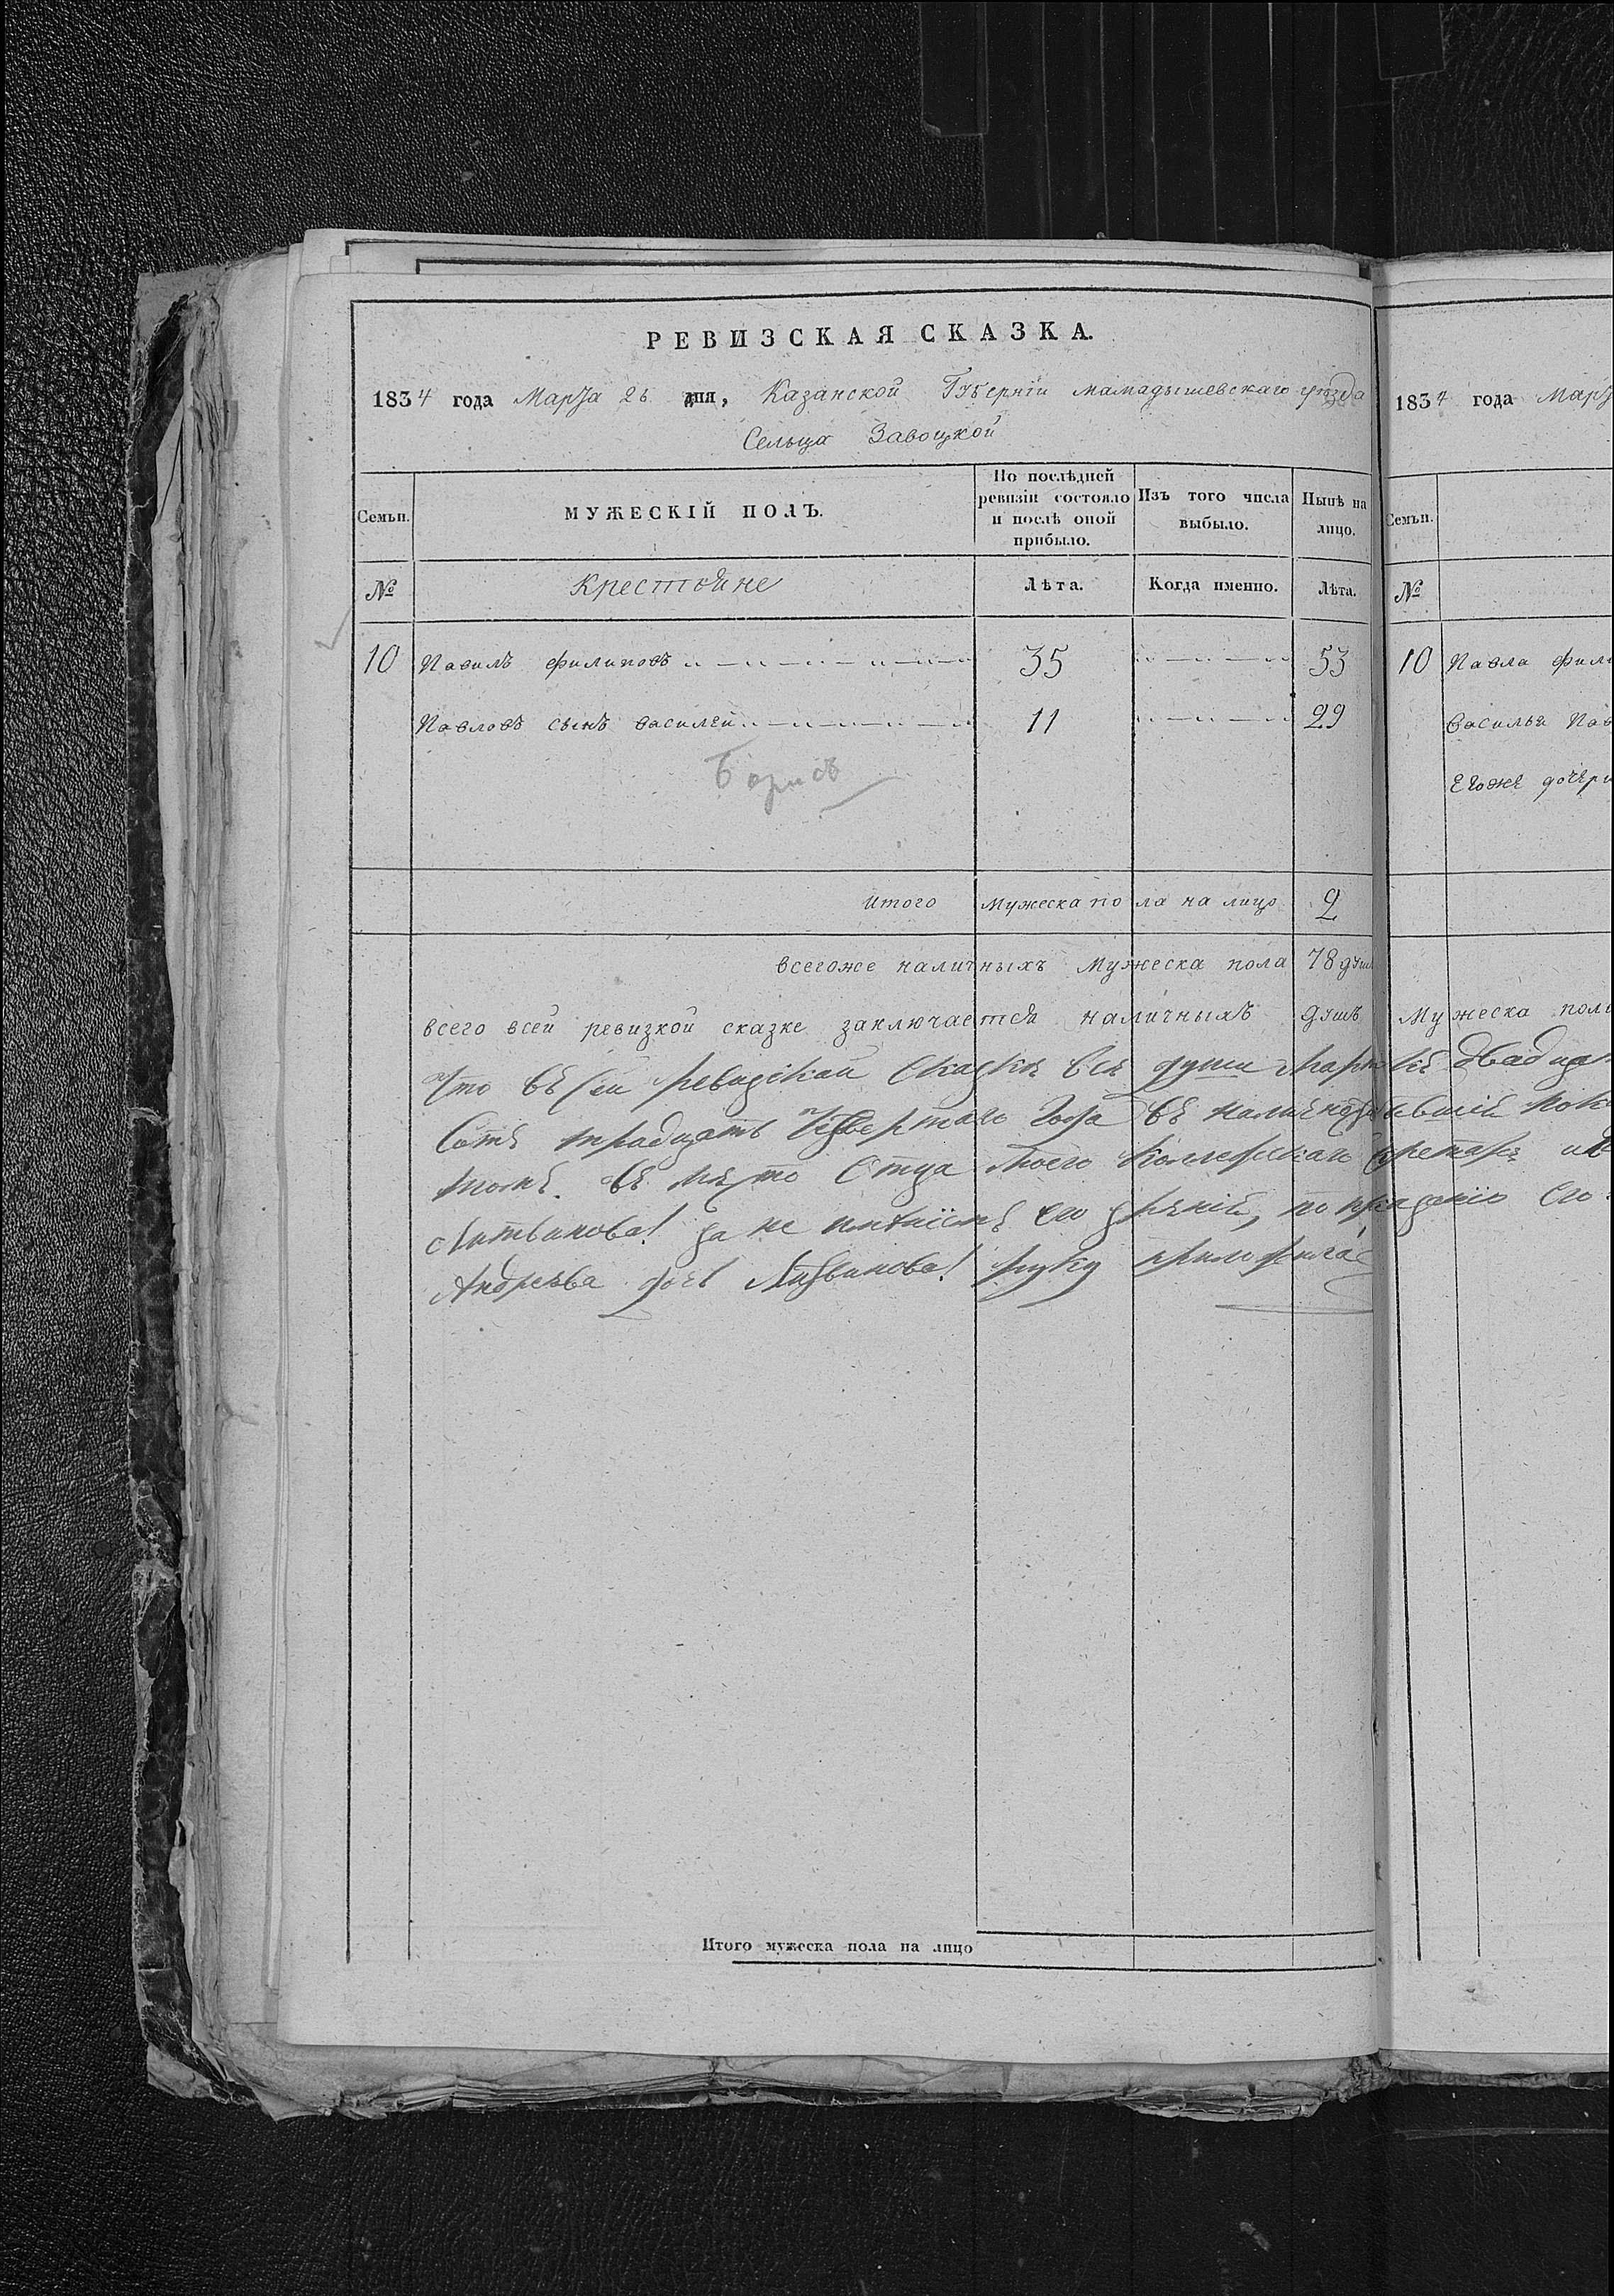 РЕВИЗСКАЯ СКАЗКА.
1834 года Марта 26 дня, Казанской Губерніи мамадышевскаго уѣзда
Сельца Завоцкой
Семьи.
МУЖЕСКІЙ ПОЛЪ.
По послѣдней ревизіи состояло и послѣ оной прибыло.
Изъ того числа выбыло.
Нынѣ на лицо.
№
крестьяне
Лѣта.
Когда именно.
Лѣта.
10 Павилъ филиповъ 35 53
Павловъ сынъ василей 11 29
Борисъ
итого мужеска пола на лицо 2
всегоже наличныхъ мужеска пола 78 душ
всего всей ревизкой сказке заключается наличныхъ душъ Мужеска пола
Что въ сей ревизской сказкѣ всѣ души двадца
Сотъ традцать четвертаго года въ
томъ. въ мѣсто Отца моего Коллежскаго
Литвинова! за не имѣніемъ его
Андреева дочь Литвинова! руку приложила
Итого мужеска пола на лицо
1834 года Мар
Семьи.
№
10 Павла фили
Василья Пав
Егоже дочери